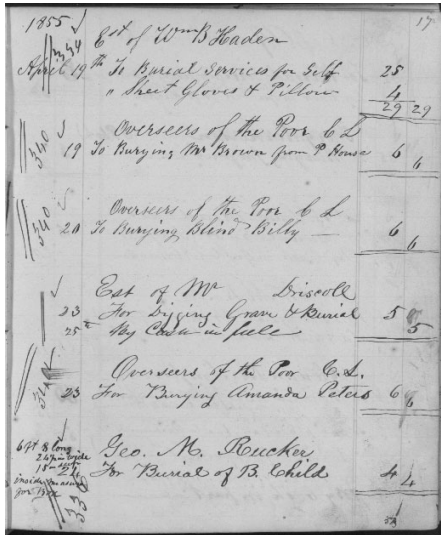 17
1855
Est of Wm B Haden
April 19th To Burial Services for Self 25
" Sheet Gloves & Pillow 4
29 29
Overseers of the Poor C L
340
19 To Burying Mr Brown from P House 6 6
Overseers of the Poor C L
340
20 To Burying Blind Billy 6 6
Est of Mr Driscoll
23 For Digging Grave & Burial 5
25 " By Cash in full 5
Overseers of the Poor C. L.
23 For Burying Amanda Peters 6 6
6 ft 8 long
Geo. M. Rucker
For Burial of B. Child 4 4
inside measure
for Box